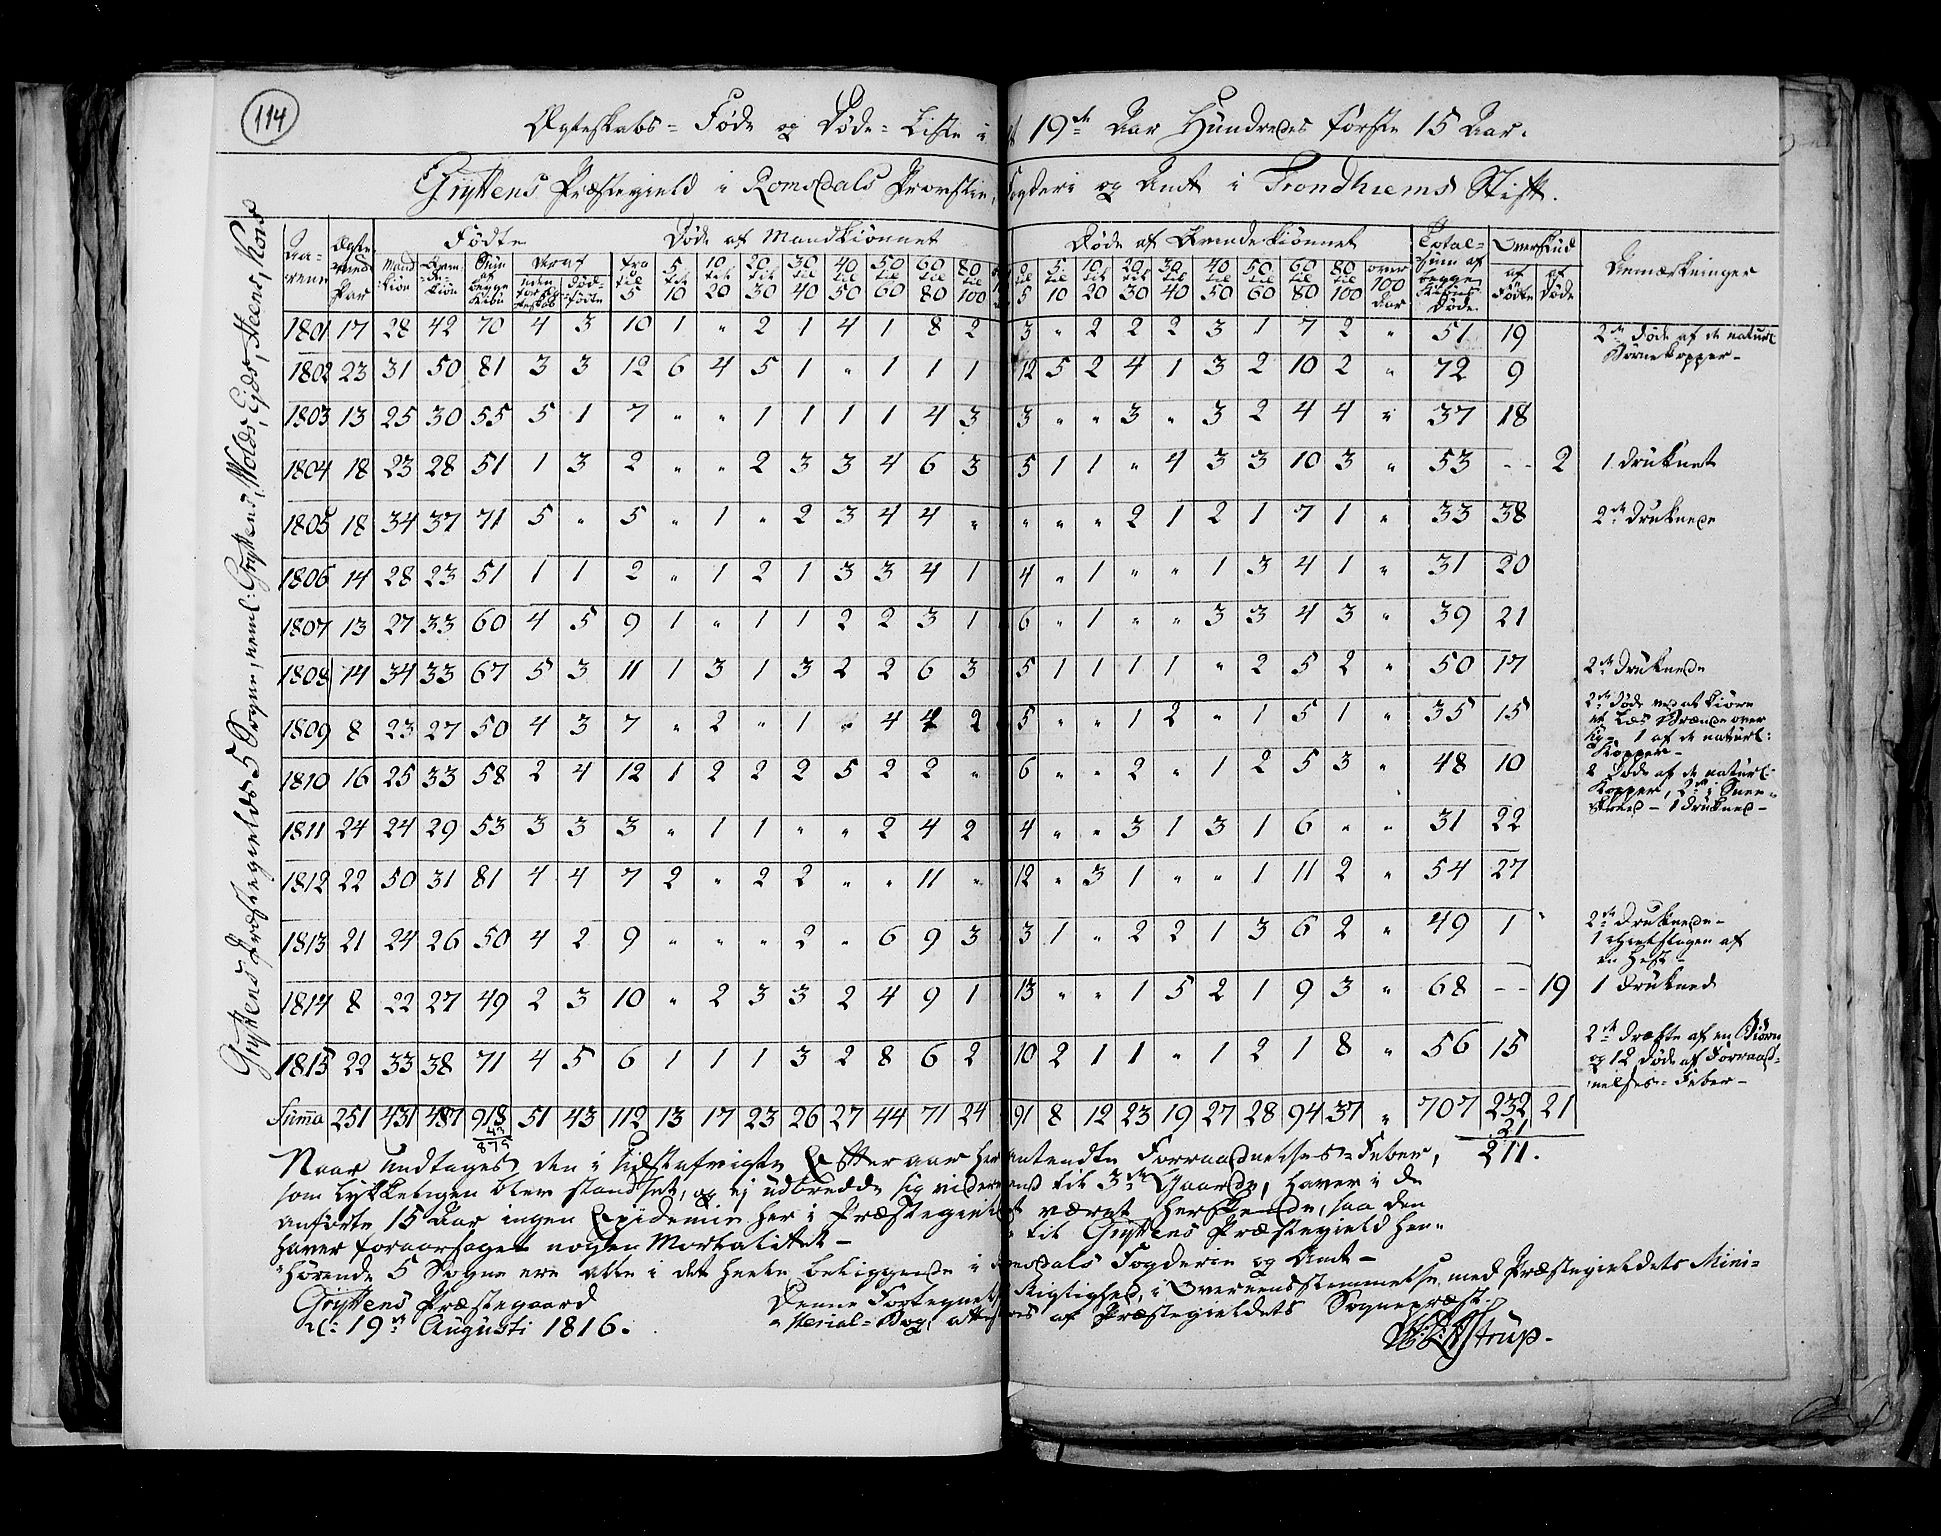 114
Ægteskabs- Føde og Døde- Liste i det 19de Aar Hundredes første 15 Aar.
Gryttens Præstegield i Romsdals Provstie, Fogderi og Amt i Trondhiems Stift.
Gryttens Præstegields 5 Sogne, neml: Gryttens, Wolds, Eids, Heens, Kors
Aarene | Ægte viede Par | Fødte | Døde af Mandkiønnet | Døde af Qvindekiønnet | Total-Sum af begge Kiøns Døde | Overskud | Anmærkninger
Mandkiøn | Qvindekiøn | Sum af begge Kiøn | Deraf uden for Ægteskab | Dødfødte | fra til 5 | 5 til 10 | 10 til 20 | 20 til 30 | 30 til 40 | 40 til 50 | 50 til 60 | 60 til 80 | 80 til 100 | til 5 | 5 til 10 | 10 til 20 | 20 til 30 | 30 til 40 | 40 til 50 | 50 til 60 | 60 til 80 | 80 til 100 | over 100 Aar | af Fødte | af Døde
1801 17 28 42 70 4 3 10 1 " 2 1 4 1 8 2 3 " 2 2 2 3 1 7 2 " 51 19 2de døde af de naturl Børnekopper-
1802 23 31 50 81 3 3 12 6 4 5 1 " 1 1 1 12 5 2 4 1 3 2 10 2 " 72 9
1803 13 25 30 55 5 1 7 " " 1 1 1 1 4 3 3 " " 3 " 3 2 4 4 " 37 18
1804 18 23 28 51 1 3 2 " " 2 3 3 4 6 3 5 1 1 " 4 3 3 10 3 " 53 -- 2 1 druknet
1805 18 34 37 71 5 " 5 " 1 " 2 3 4 4 " " " " 2 1 2 1 7 1 " 33 38 2de druknede
1806 14 28 23 51 1 1 2 " 1 2 1 3 3 4 1 4 " 1 " " 1 3 4 1 " 31 20
1807 13 27 33 60 4 5 9 1 " 1 1 2 2 3 1 6 " 1 " " 3 3 4 3 " 39 21
1808 14 34 33 67 5 3 11 1 3 1 3 2 2 6 3 5 1 1 1 1 " 2 5 2 " 50 17 2de druknede
1809 8 23 27 50 4 3 7 " 2 " 1 " 4 4 2 5 " " 1 2 " 1 5 1 " 35 15 2de døde ved at kiøre et Læs Brænde over sig- 1 af de naturl: Kopper-
1810 16 25 33 58 2 4 12 1 2 2 2 5 2 2 " 6 " " 2 " 1 2 5 3 " 48 10 2 døde af de naturl: Kopper, 2de i Sneeskred- 1 drukned-
1811 24 24 29 53 3 3 3 " 1 1 " " 2 4 2 4 " " 3 1 3 1 6 " " 31 22
1812 22 50 31 81 4 4 7 2 " 2 2 " " 11 " 12 " 3 1 " " 1 11 2 " 54 27
1813 21 24 26 50 4 2 9 " " " 2 " 6 9 3 3 1 " 2 2 1 3 6 2 " 49 1 " 2de druknede- 1 ihielslagen af en Hest-
1814 8 22 27 49 2 3 10 " 2 3 3 2 4 9 1 13 " " 1 5 2 1 9 3 " 68 -- 19 1 drukned
1815 22 33 38 71 4 5 6 1 1 1 3 2 8 6 2 10 2 1 1 " 1 2 1 8 " 56 15 2de dræbte af en Biørn og 12 døde af Forraadnelses-Feber-
Summa 251 431 487 918 51 43 112 13 17 23 26 27 44 71 24 91 8 12 23 19 27 28 94 37 " 707 232 21
43 21
875 211.
Naar undtages den i sidstafvigte Efteraar her antendte Forraadnelses-Feber,
som lykkeligen blev standset, og ej udbredde sig videre end til 3de Gaarde, haver i de
anførte 15 Aar ingen Epidemie her i Præstegieldet været herskende, saa den
haver foraarsaget nogen Mortalitet- til Gryttens Præstegield hen-
hørende 5 Sogne ere alle i det heele beliggende i Romsdals Fogderie og Amt-
Gryttens Præstegaard
d: 19de Augusti 1816.
Denne Fortegnelses Rigtighed, i Overeensstemmelse med Præstegieldets Mini-
sterial-Bog, attesteres af Præstegieldets Sognepræst.
Astrup.